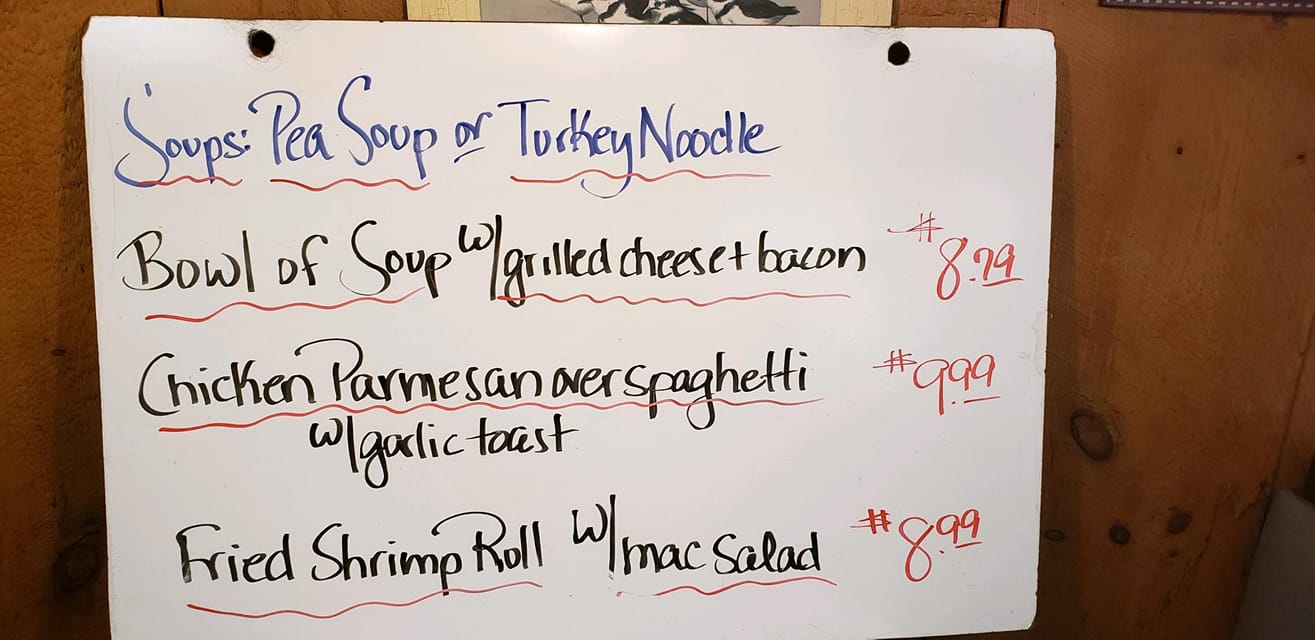 Soups: Pea Soup or Turkey Noodle
Bowl of Soup w/grilled cheese + bacon #8.79
Chicken Parmesan over spaghetti #9.99
w/garlic toast
Fried Shrimp Roll w/mac Salad #8.99